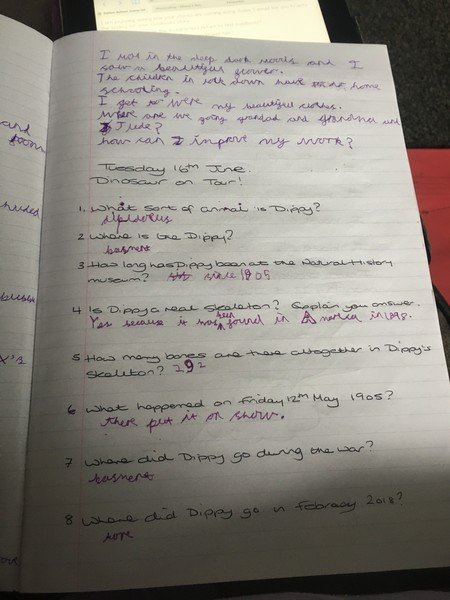 I was in the deep dark woods and I
saw a beautiful flower.
The children in lock down have home
schooling.
I get to were my beautiful clothes.
Where are we going grandad and grandma and
Jude?
how can I improve my work?
Tuesday 16th June.
Dinosaur on Tour!
1. What sort of animal is Dippy?
diplodocus
2 Where is the Dippy?
basment
3 How long has Dippy been at the Natural History
museum? since 1905
4 Is Dippy a real skeleton? Explain you answer.
Yes because it was been found in America in 1898.
5 How many bones are there altogether in Dippy's
skeleton? 292
6 What happened on Friday 12th May 1905?
there put it on show.
7 Where did Dippy go during the war?
basment
8 Where did Dippy go in February 2018?
and
room